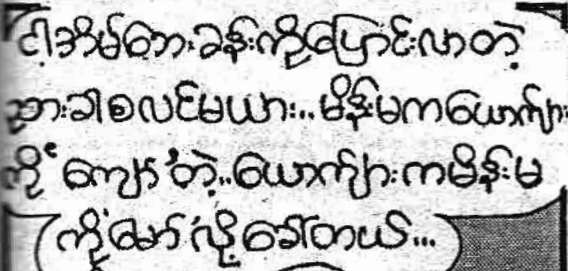 ငါ့အိမ်ဘေးခန်းကိုပြောင်းလာတဲ့
ညားခါစလင်မယား..မိန်းမကယောက်ျား
ကို "ကျော" တဲ့..ယောက်ျားကမိန်းမ
ကို "မော်" လို့ခေါ်တယ်...